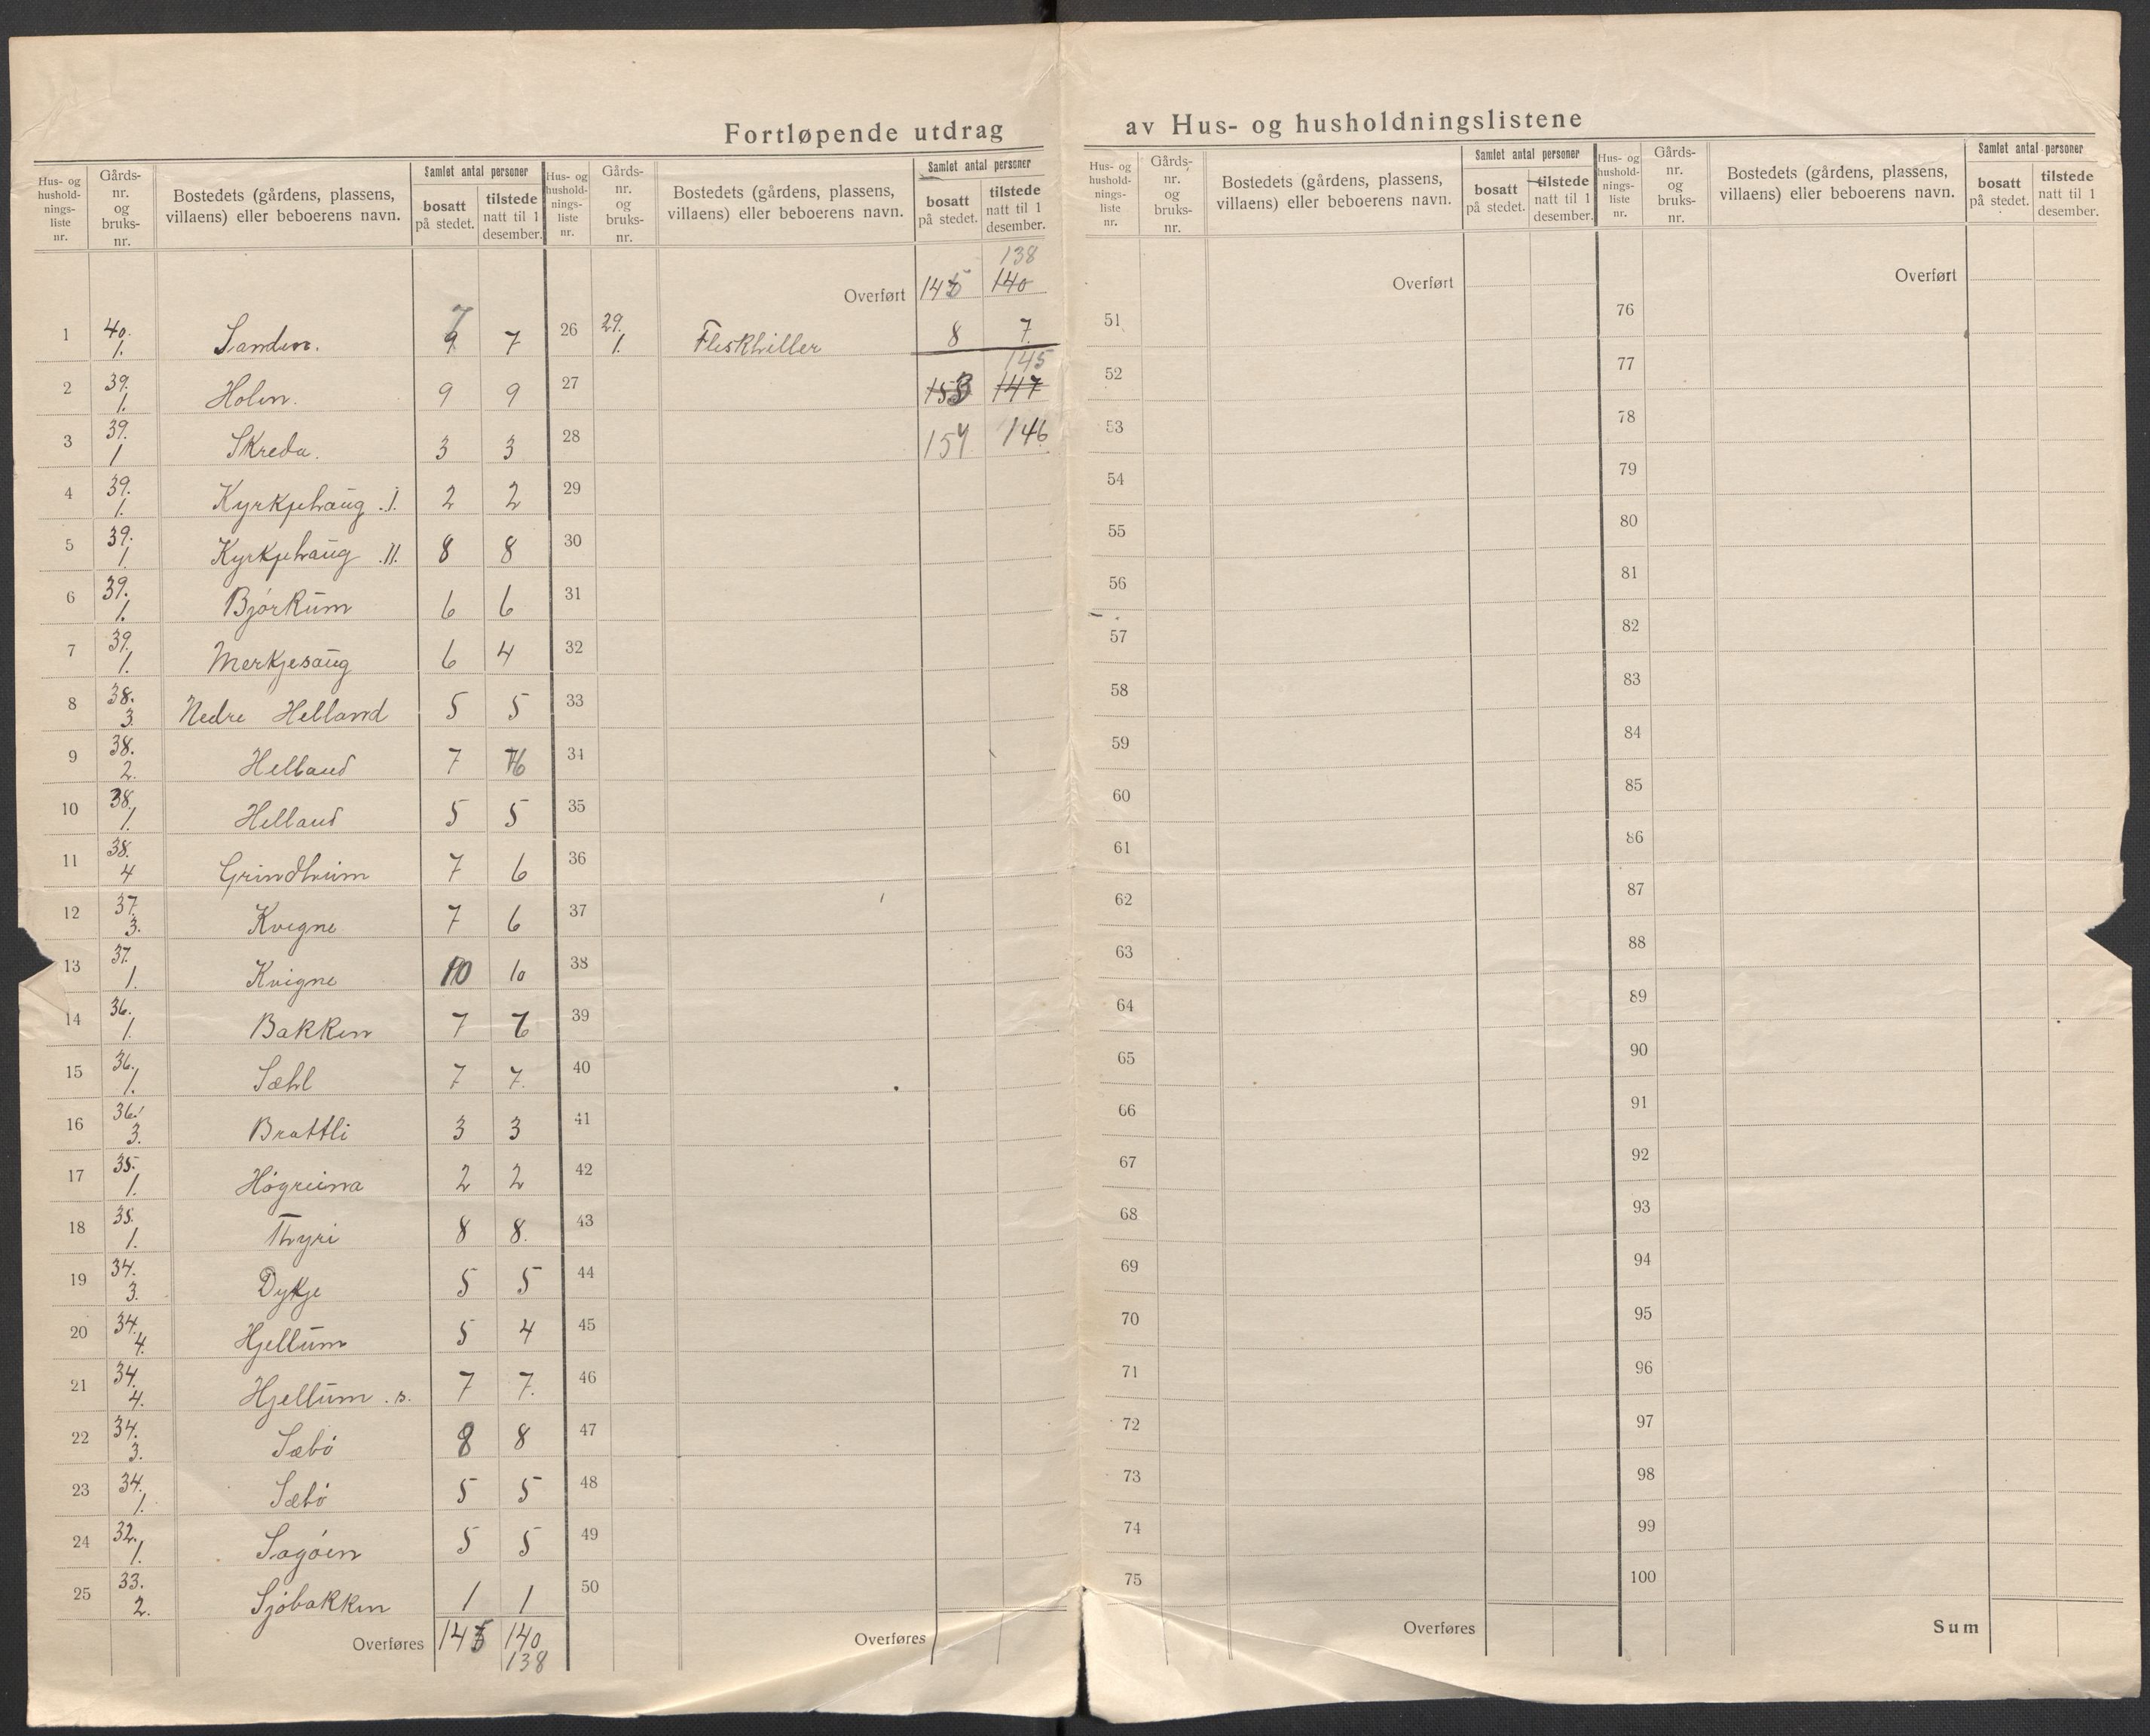 Fortløpende utdrag av Hus- og husholdningslistene
Hus- og hushold-nings-liste nr. | Gårds-nr. og bruks-nr. | Bostedets (gårdens, plassens, villaens) eller beboerens navn. | Samlet antal personer | bosatt på stedet. | tilstede natt til 1 desember.
1 40. 1. Sanden. 9 7 7
2 39. 1. Holen. 9 9
3 39. 1 Skreda. 3 3
4 39. 1. Kyrkjehaug .I. 2 2
5 39. 1. Kyrkjehaug .II. 8 8
6 39. 1. Bjørkum 6 6
7 39. 1. Merkjesaug 6 4
8 38. 3. Nedre Helland 5 5
9 38. 2. Helland 7 6
10 38. 1. Helland 5 5
11 38. 4 Grindheim 7 6
12 37. 3. Kvigne 7 6
13 37. 1. Kvigne 10 10
14 36. 1. Bakken 7
15 36. 1. Sæhl 7 7.
16 36. 3. Brattli 3 3
17 35. 1. Høgreina 2 2
18 35. 1. Thyri 8 8.
19 34. 3. Dykje 5 5
20 34. 4. Hjellum 5 4
21 34. 4. Hjellum . s. 7 7.
22 34. 3. Sæbø 8 8
23 34. 1. Sæbø 5 5
24 32. 1. Sagøen 5 5
25 33. 2. Sjøbakken 1 1
Overføres 140
138
Hus- og hushold-nings-liste nr. | Gårds-nr. og bruks-nr. | Bostedets (gårdens, plassens, villaens) eller beboerens navn. | Samlet antal personer | bosatt på stedet. | tilstede natt til 1 desember.
138
Overført 140
26 29. 1. Fleskhiller 8 7.
145
27 153 147
28 154 146
29
30
31
32
33
34
35
36
37
38
39
40
41
42
43
44
45
46
47
48
49
50
Overføres
Hus- og hushold-nings-liste nr. | Gårds-nr. og bruks-nr. | Bostedets (gårdens, plassens, villaens) eller beboerens navn. | Samlet antal personer | bosatt på stedet. | tilstede natt til 1 desember.
Overført
51
52
53
54
55
56
57
58
59
60
61
62
63
64
65
66
67
68
69
70
71
72
73
74
75
Overføres
Hus- og hushold-nings-liste nr. | Gårds-nr. og bruks-nr. | Bostedets (gårdens, plassens, villaens) eller beboerens navn. | Samlet antal personer | bosatt på stedet. | tilstede natt til 1 desember.
Overført
76
77
78
79
80
81
82
83
84
85
86
87
88
89
90
91
92
93
94
95
96
97
98
99
100
Sum